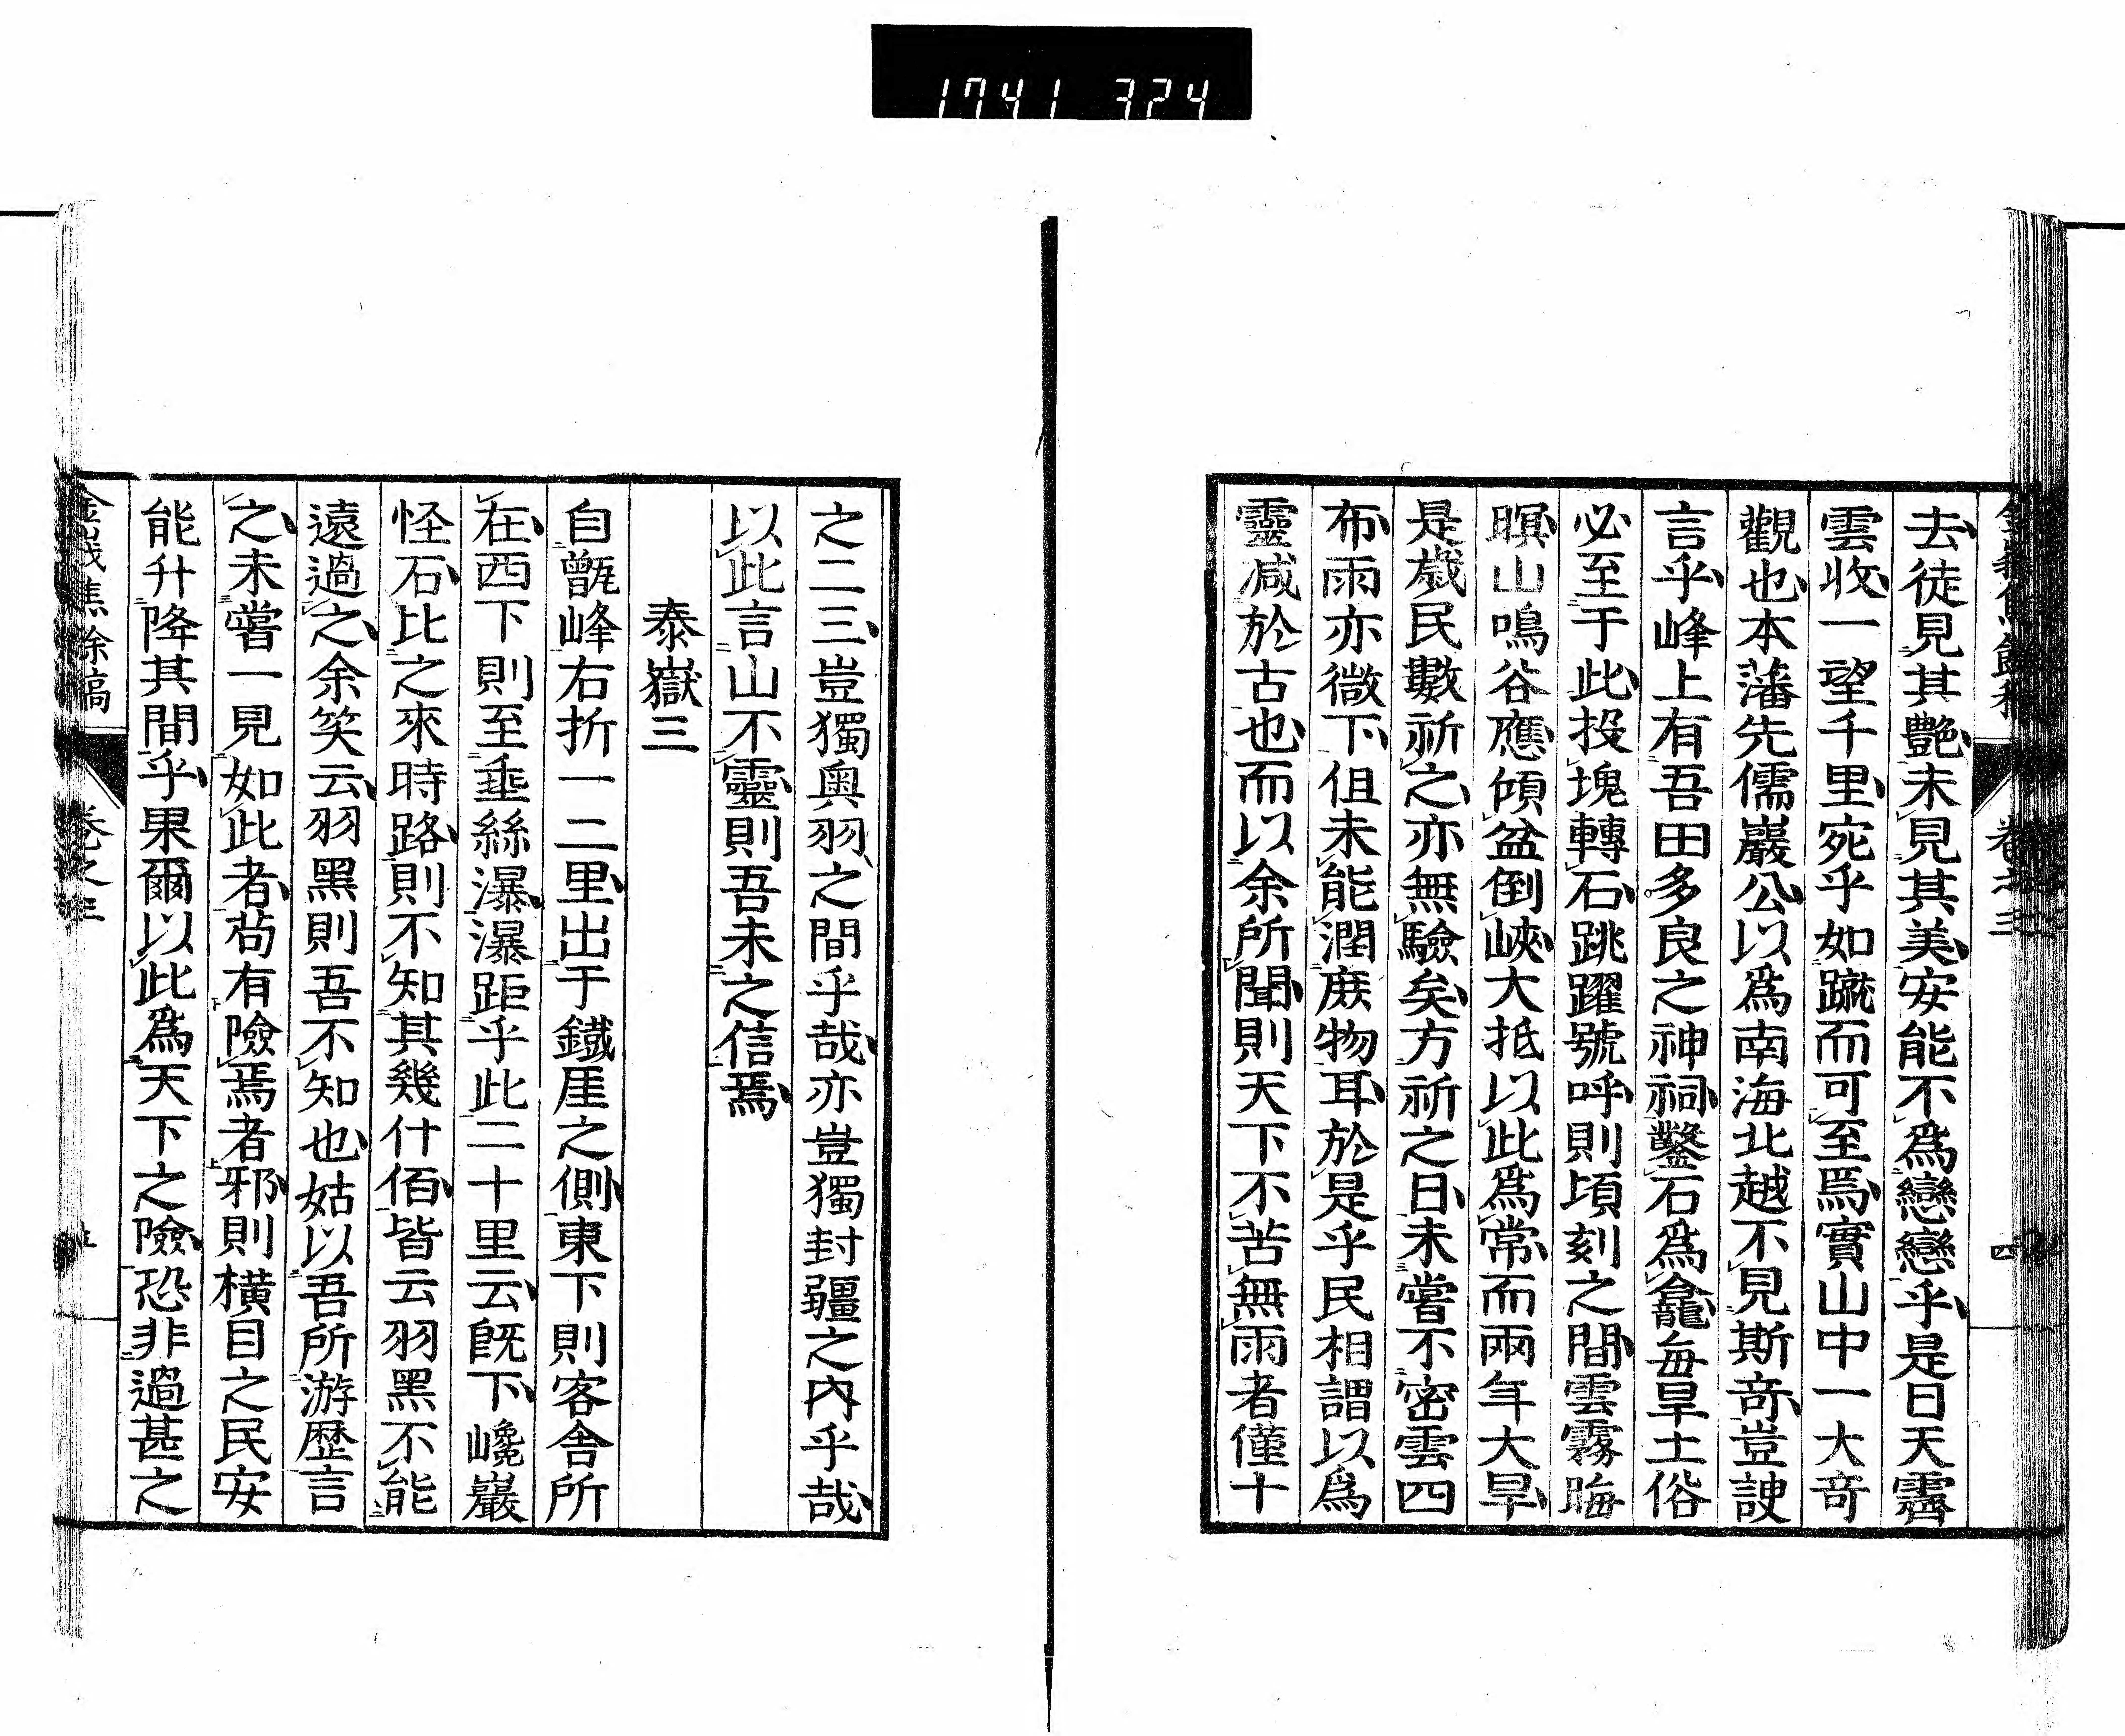 1741 324
去徒見其艷未見其美安能不爲戀戀乎是日天霽
雲收一望千里宛乎如蹴而可至焉實山中一大奇
觀也本藩先儒巖公以爲南海北越不見斯奇豈諛
言乎峰上有吾田多良之神祠鑿石爲龕每旱土俗
必至于此投塊轉石跳躍號呼則頃刻之間雲霧晦
暝山鳴谷應傾盆倒峽大抵以此爲常而兩年大旱
是歲民數祈之亦無驗矣方祈之日未嘗不密雲四
布雨亦微下但未能潤庶物耳於是乎民相謂以爲
靈减於古也而以余所聞則天下不苦無雨者僅十
之二三豈獨奧羽之間乎哉亦豈獨封疆之內乎哉
以此言山不靈則吾未之信焉
泰嶽三
自甑峰右折一二里出于鐵厓之側東下則客舍所
在西下則至埀絲瀑瀑距乎此二十里云既下巉巖
怪石比之來時路則不知其幾什佰皆云羽黑不能
遠過之余笑云羽黑則吾不知也姑以吾所游歷言
之未嘗一見如此者苟有險焉者邪則橫目之民安
能升降其間乎果爾以此爲天下之險恐非過甚之
卷之三